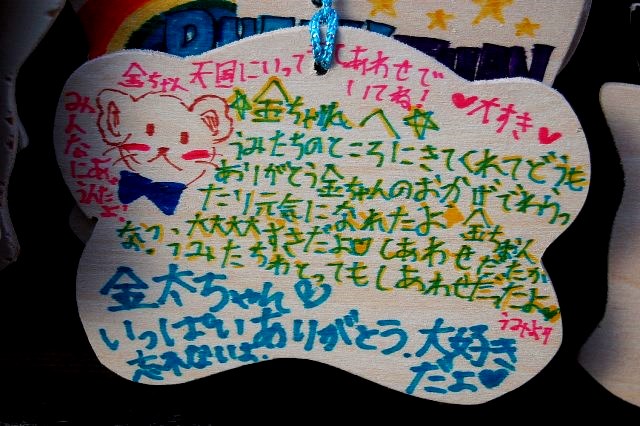 金ちゃん 天国にいってしあわせで
いてね!
♥大すき♥
みんなにあ
うんだよ
☆金ちゃんへ☆
うみたちのところにきてくれてどうも
ありがとう金ちゃんのおかげでわらっ
たり元気になれたよ 金ちゃん
大大大大すきだよ♡しあわせだったか
な?うみたちわとってもしあわせだったよ
うみより
金太ちゃん♡
いっぱいありがとう.大好き
だよ♥
忘れないよ.